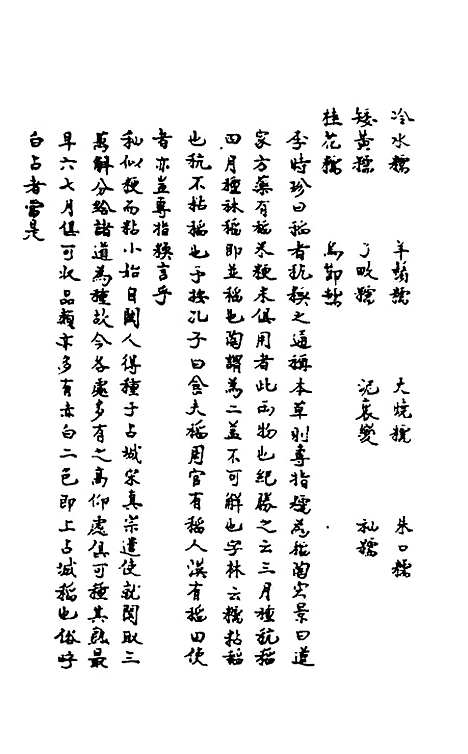 冷水糯 羊鬚糯 大燒糯 朱口糯
矮黃糯 了畝糯 泥裏變 私糯
桂花糯 烏節糯
李時珍曰稻者秔糯之通稱本草則專指糯為稻陶宏景曰道
家方藥有稻米粳米俱用者此兩物也紀勝之云三月種秔稻
四月種秫稻即並稻也陶謂為二蓋不可解也字林云糯粘稻
也秔不粘稻也予按孔子曰食夫稻周官有稻人漢有稻田使
者亦豈專指糯言乎
秈似粳而粘小始自閩人得種于占城宋真宗遣使就閩取三
萬斛分給諸道為種故今各處多有之高仰處俱可種其熟最
早六七月俱可收品類亦多有赤白二色即上占城稻也俗呼
白占者當是